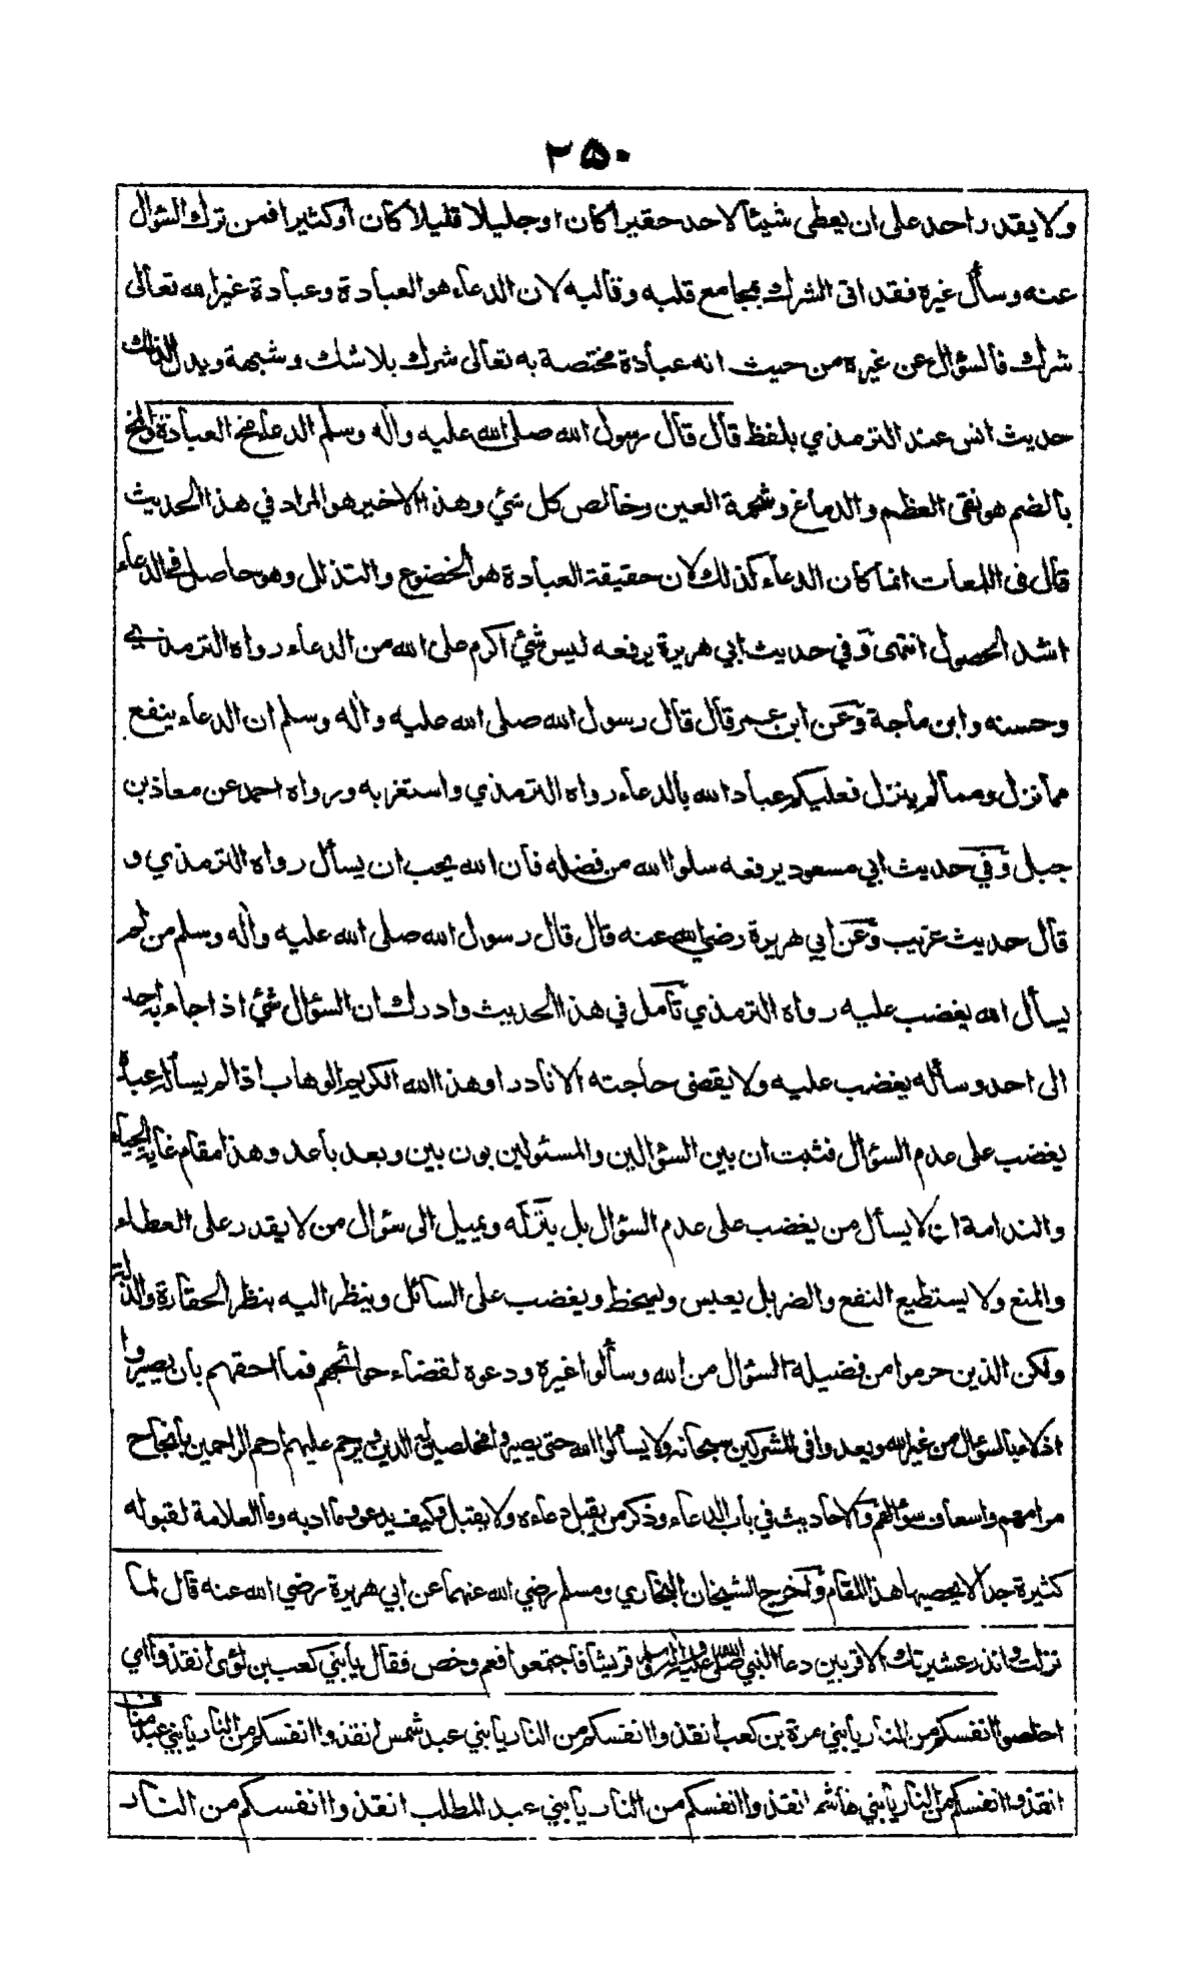 ٢٥٠
ولا يقدر احد على ان يعطى شيئا لاحد حقيرا كان او جليلا قليلا كان او كثيرا فمن ترك السؤال
عنه وسأل غيره فقد اتى الشرك بمجامع قلبه وقالبه لان الدعاء هو العبادة وعبادة غير الله تعالى
شرك فالسؤال عن غيره من حيث انه عبادة مختصة به تعالى شرك بلا شك وشبهة ويدل لذلك
حديث انس عند الترمذي بلفظ قال قال رسول الله صلى الله عليه واله وسلم الدعاء مخ العبادة والمخ
بالضم هو نقى العظم والدماغ وشحمة العين وخالص كل شئ وهذا الاخير هو المراد في هذا الحديث
قال فى اللمعات انما كان الدعاء كذلك لان حقيقة العبادة هو الخضوع والتذلل وهو حاصل فى الدعاء
اشد الحصول انتهى وفي حديث ابي هريرة يرفعه ليس شئ اكرم على الله من الدعاء رواه الترمذي
وحسنه وابن ماجة وعن ابن عمر قال قال رسول الله صلى الله عليه واله وسلم ان الدعاء ينفع
مما نزل ومما لم ينزل فعليكم عباد الله بالدعاء رواه الترمذي واستغربه ورواه احمد عن معاذ بن
جبل وفي حديث ابي مسعود يرفعه سلوا الله من فضله فان الله يحب ان يسأل رواه الترمذي و
قال حديث غريب وعن ابي هريرة رضي الله عنه قال قال رسول الله صلى الله عليه واله وسلم من لم
يسأل الله يغضب عليه رواه الترمذي تأمل في هذا الحديث وادرك ان السؤال شئ اذا جاء به احد
الى احد وسأله يغضب عليه ولا يقضى حاجته الا نادرا وهذا الله الكريم الوهاب اذا لم يسأله عبده
يغضب على عدم السؤال فثبت ان بين السؤالين والمسئولين بون بين وبعد باعد وهذا مقام غاية الحياء
والندامة ان لا يسأل من يغضب على عدم السؤال بل يتركه ويميل الى سؤال من لا يقدر على العطاء
والمنع ولا يستطيع النفع والضر بل يعبس ويسخط ويغضب على السائل وينظر اليه بنظر الحقارة والذلة
ولكن الذين حرموا من فضيلة السؤال من الله وسألوا غيره ودعوه لقضاء حوائجهم فما احقهم بان يصيروا
اذلاء بالسؤال من غير الله ويعدوا فى المشركين سبحانه ولا يسألوا الله حتى يصيروا مخلصين له الدين ويرحم عليهم ارحم الراحمين بانجاح
مرامهم واسعاف سؤالهم والاحاديث في باب الدعاء وذكر من يقبل دعاءه ولا يقبل وكيف يدعو وما ادبه وما العلامة لقبوله
كثيرة جدا لا يحصيها هذا المقام واخرج الشيخان البخاري ومسلم رضي الله عنهما عن ابي هريرة رضي الله عنه قال لما
نزلت وانذر عشيرتك الاقربين دعا النبي صلى الله عليه واله وسلم قريشا فاجتمعوا فعم وخص فقال يا بني كعب بن لؤى انقذوا اي
اخلصوا انفسكم من النار يا بني مرة بن كعب انقذوا انفسكم من النار يا بني عبد شمس انقذوا انفسكم من النار يا بني عبد مناف
انقذوا انفسكم من النار يا بني هاشم انقذوا انفسكم من النار يا بني عبد المطلب انقذوا انفسكم من النار